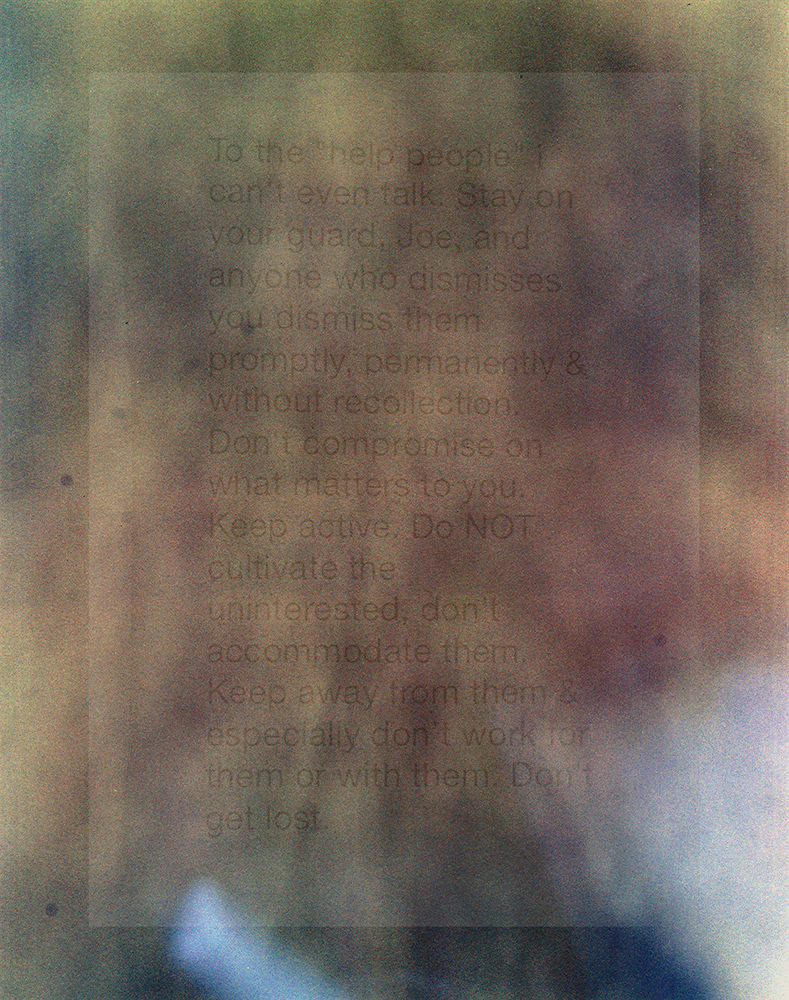 To the "help people" i
can't even talk. Stay on
your guard, Joe, and
anyone who dismisses
you dismiss them
promptly, permanently &
without recollection.
Don't compromise on
what matters to you.
Keep active. Do NOT
cultivate the
uninterested, don't
accommodate them.
Keep away from them &
especially don't work for
them or with them. Don't
get lost.